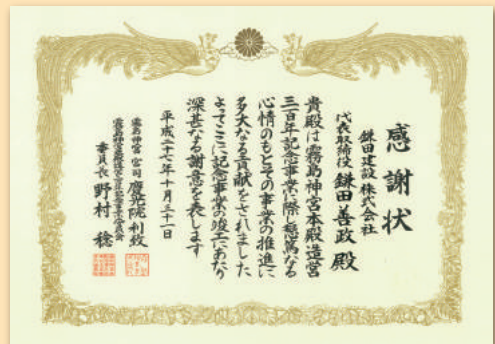 感謝状
鎌田建設株式会社
代表取締役 鎌田善政 殿
貴殿は霧島神宮本殿造営
三百年記念事業に際し懇篤なる
心情のもとその事業の推進に
多大なる貢献をされました
よってここに記念事業の竣工にあたり
深甚なる謝意を表します
平成二十七年十月三十一日
霧島神宮 宮司 慶光院利致
委員長 野村 稔